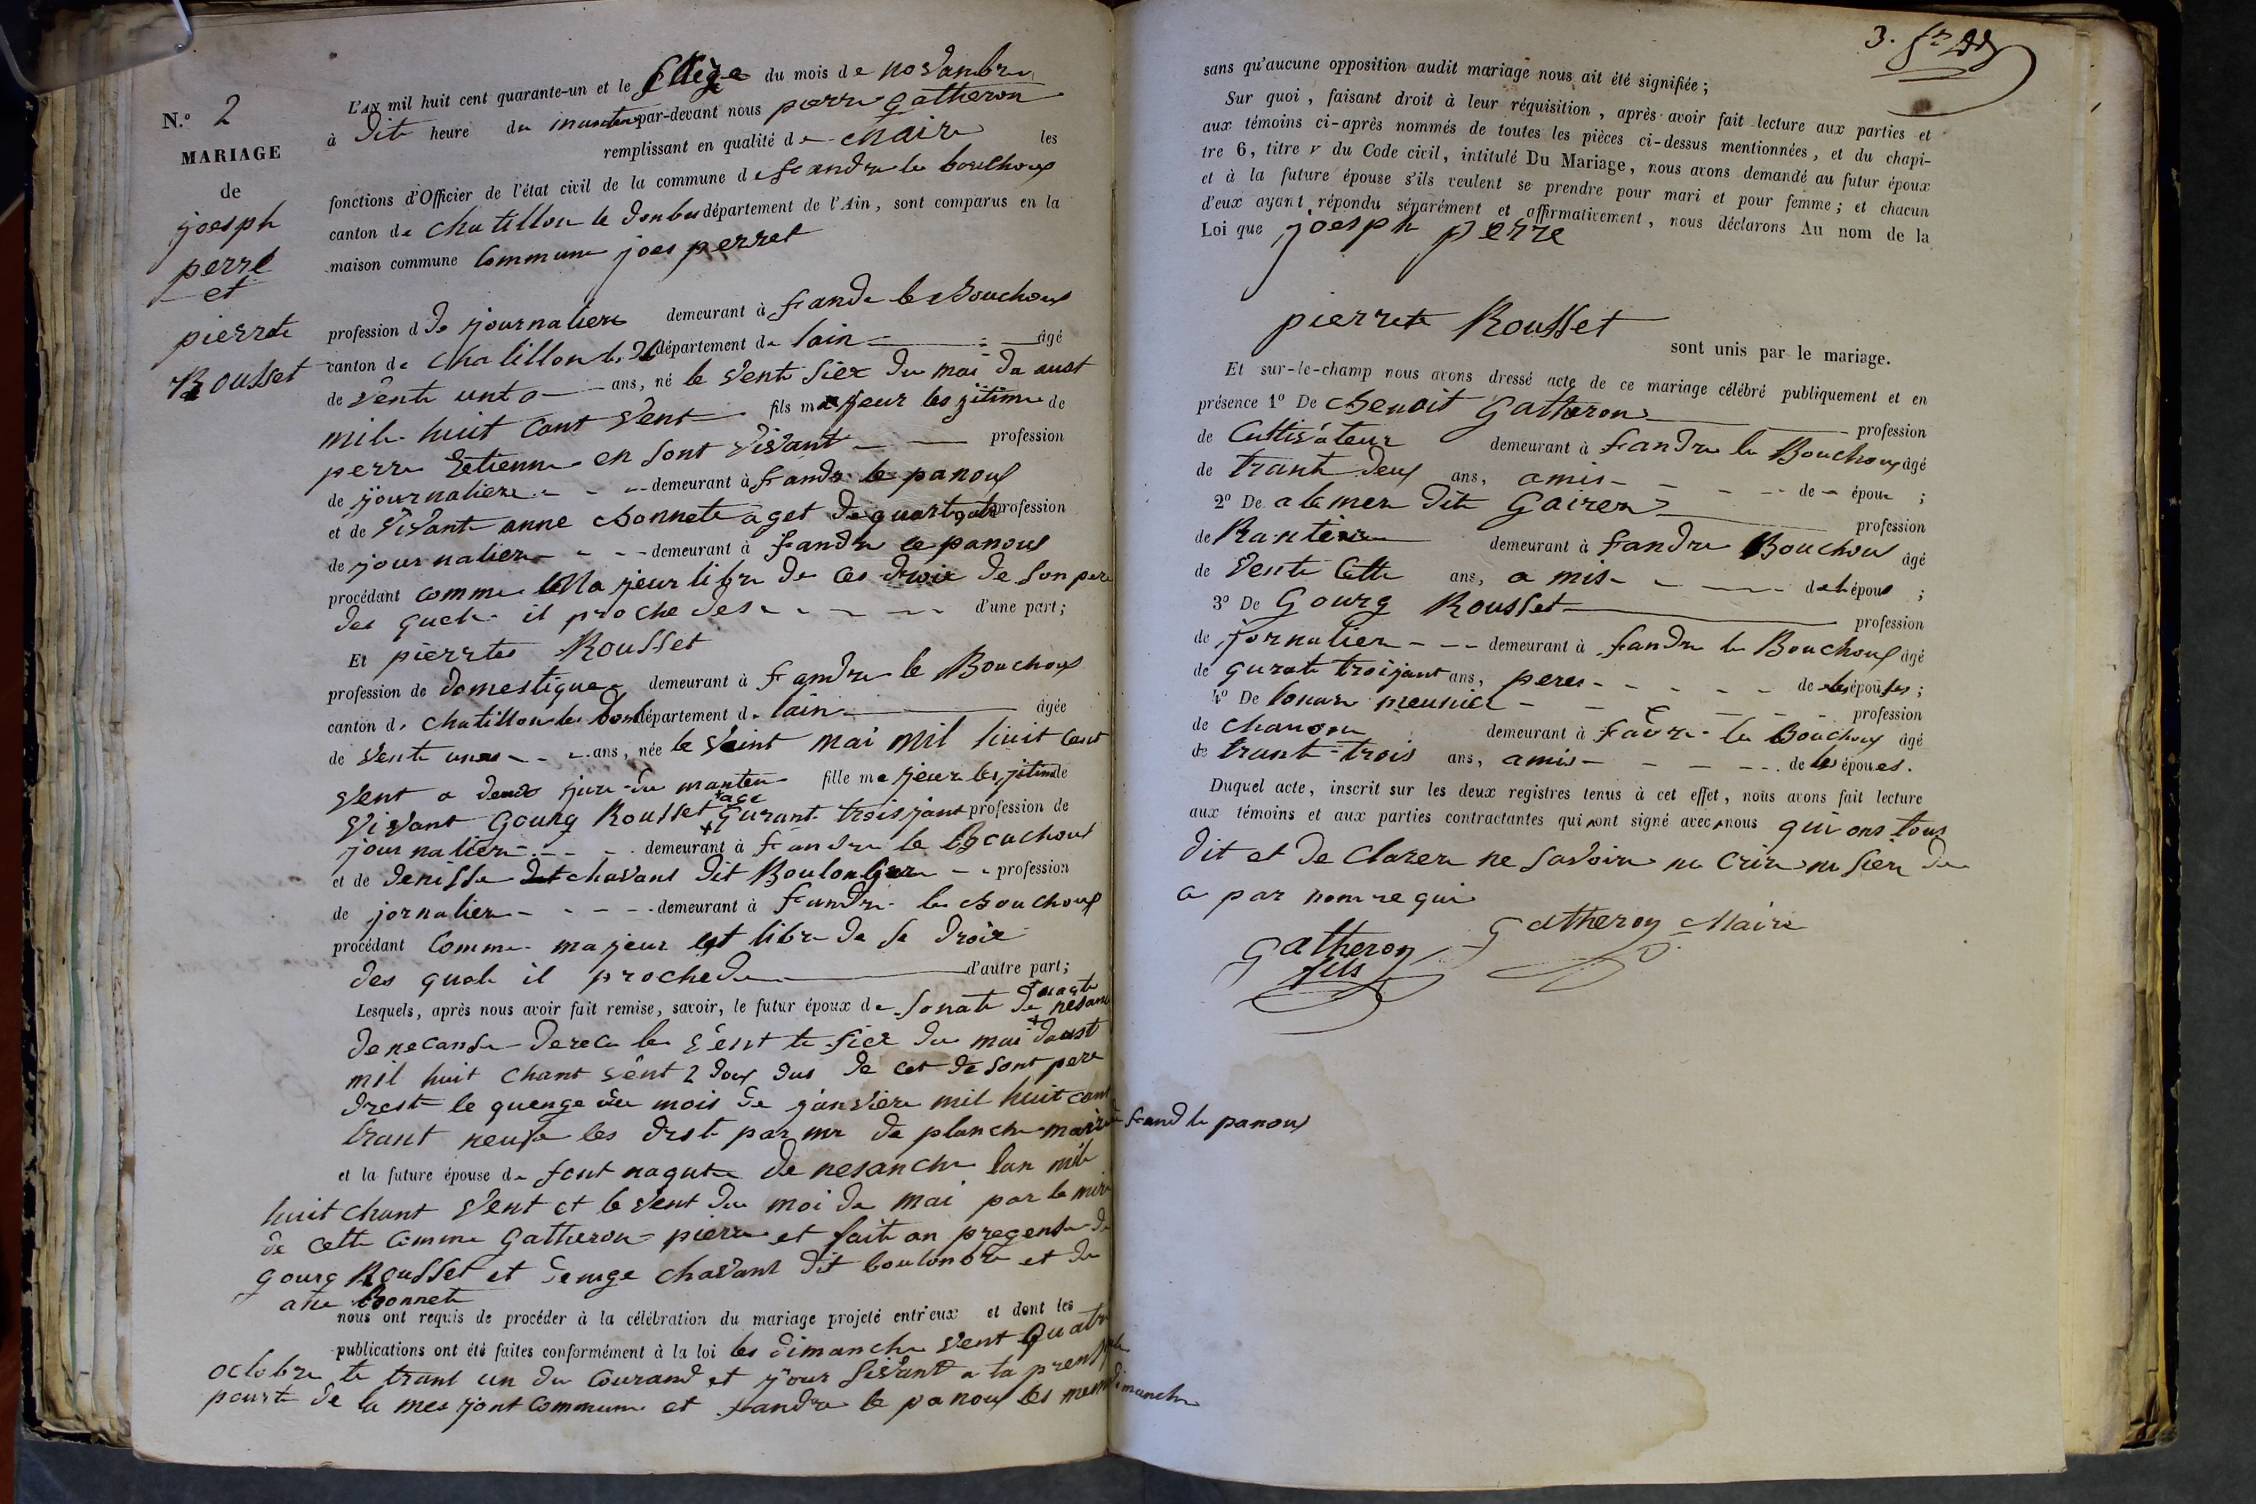 N.º 2
MARIAGE
de
joesph
perre
et
pierrete
Rousset
L'AN mil huit cent quarante-un et le du mois de novanbre
à dite heure du manten par-devant nous pierre gatheron
remplissant en qualité de Maire les
fonctions d'Officier de l'état civil de la commune de st andre le bouchoux
canton de chatillon le donbes département de l'Ain, sont comparus en la
maison commune commune joes perret
profession d de journaliere demeurant à st andre le Bouchoux
canton de chatillon le département de lain âgé
de vente unt o ans, né le vente siex du mai da aust
mile huit cant vent fils majeur les jitime de
perre Eetienne en sont vivant profession
de journaliere demeurant à st andre le panoux
et de vivante anne Bonnete aget de profession
de journaliere demeurant à st andre le panoux
procédant comme Majeur libre de ces droix de son pere
des quele il prochedes d'une part;
Et pierrtes Rousset
profession de domestique demeurant à st andre le Bouchoux
canton de chatillon les donb département de lain âgée
de vente unas ans, née le veint mai mil huit cent
vent a deux jure du manten fille majeur les jitimde
vivant Gourg Rousset age qurant trois jant profession de
journaliere demeurant à st andre le Bouchoux
et de denisse chavant dit Boulongere profession
de jornaliere demeurant à st andre le Bouchoux
procédant comme majeur est libre de se droix
des quele il prochede d'autre part;
Lesquels, après nous avoir fait remise, savoir, le futur époux de sonate de nesans
de necanse derece le vent te siex du mai daust
mil huit chant vent 2 doux dus de cet de sont pere
drest le quenge du mois de janviere mil huit cant
trant neufe les drest par mr de planche maire de st and le panoux
et la future épouse de sont naqute de nesanche lan mil
huit chant vent et le vent du moi de mai par le mire
de cette comme gatheron pierre et fait an pregense de
gourg Rousset et denige chavant dit boulonbre et de
ane Bonnete
nous ont requis de procéder à la célébration du mariage projeté entr'eux et dont les
publications ont été faites conformément à la loi les dimanche vent quatre
octobre te trant un du courand et jour sisvant a la
pourte de la mes jont commune et st andre le panoux les meme dimanche
3.
sans qu'aucune opposition audit mariage nous ait été signifiée;
Sur quoi, faisant droit à leur réquisition, après avoir fait lecture aux parties et
aux témoins ci-après nommés de toutes les pièces ci-dessus mentionnées, et du chapi-
tre 6, titre V du Code civil, intitulé Du Mariage, nous avons demandé au futur époux
et à la future épouse s'ils veulent se prendre pour mari et pour femme; et chacun
d'eux ayant répondu séparément et affirmativement, nous déclarons Au nom de la
Loi que joesph perre
pierrete Rousset
sont unis par le mariage.
Et sur-le-champ nous avons dressé acte de ce mariage célébré publiquement et en
présence 1º De Benoit Gatheron profession
de Cultivateur demeurant à st andre le Bouchoux âgé
de trante deux ans, amis de époux ;
2º De alemer dite Gairer profession
de Rantiere demeurant à st andre Bouchoux âgé
de vente cette ans, a mis de l époux ;
3º De Gourg Rousset profession
de jornalier demeurant à st andre le Bouchoux âgé
de qurate troisjant ans, peres de les épouses ;
4º De meunier profession
de charon demeurant à le Bouchoux âgé
de trante-trois ans, amis de les épou es.
Duquel acte, inscrit sur les deux registres tenus à cet effet, nous avons fait lecture
aux témoins et aux parties contractantes qui ont signé avec nous qui ons tous
dit et de clarer ne savoire ne crire ni sien de
a par nom re qui
Gatheron
fils
Gatheron Maire